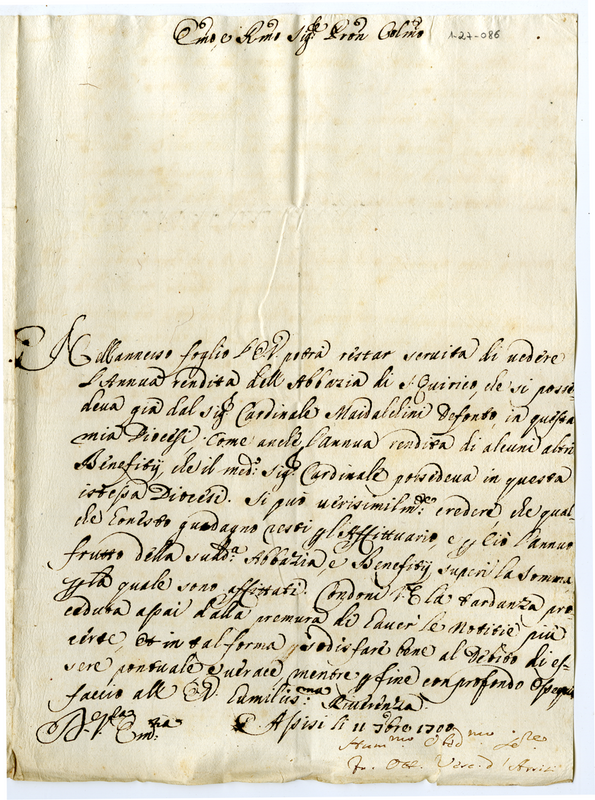 Emo, e Rmo Sigr. Pron Colmo
1-27-086
Nell'annesso foglio l'E.V. potrà restar servita di vedere
l'Annua rendita dell'Abbazia di S. Quirico, che si posse-
deva già dal Sigr. Cardinale Maidalchini Defonto, in questa
mia Diocesi come anche l'annua rendita di alcuni altri
Benefitij, che il medo. Sigr. Cardinale possedeva in questa
istessa Diocese. Si può verisimilmte. credere, che qual-
che honesto guadagno resti p gl'Affittuario e p ciò l'annuo
frutto della sudda. Abbazia, e Benefitij superi la somma
p la quale sono affittati. Condoni l'E. la tardanza pro-
ceduta assai dalla premura di haver le Notitie più
certe, et in tal forma p sodisfare bene al Debito di es-
sere pontuale e verace, mentre p fine con profondo Ossequio
faccio alla E.V. humilisma. Riverenza.
D. V. Emza.
Assisi li 11 9bre 1700
Hummo Obdmo